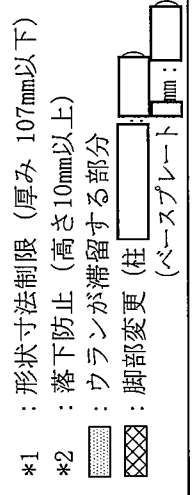 *1 : 形状寸法制限 (厚み 107mm以下)
*2 : 落下防止 (高さ10mm以上)
: ウランが滞留する部分
: 脚部変更 (柱
(ベースプレート
mm :